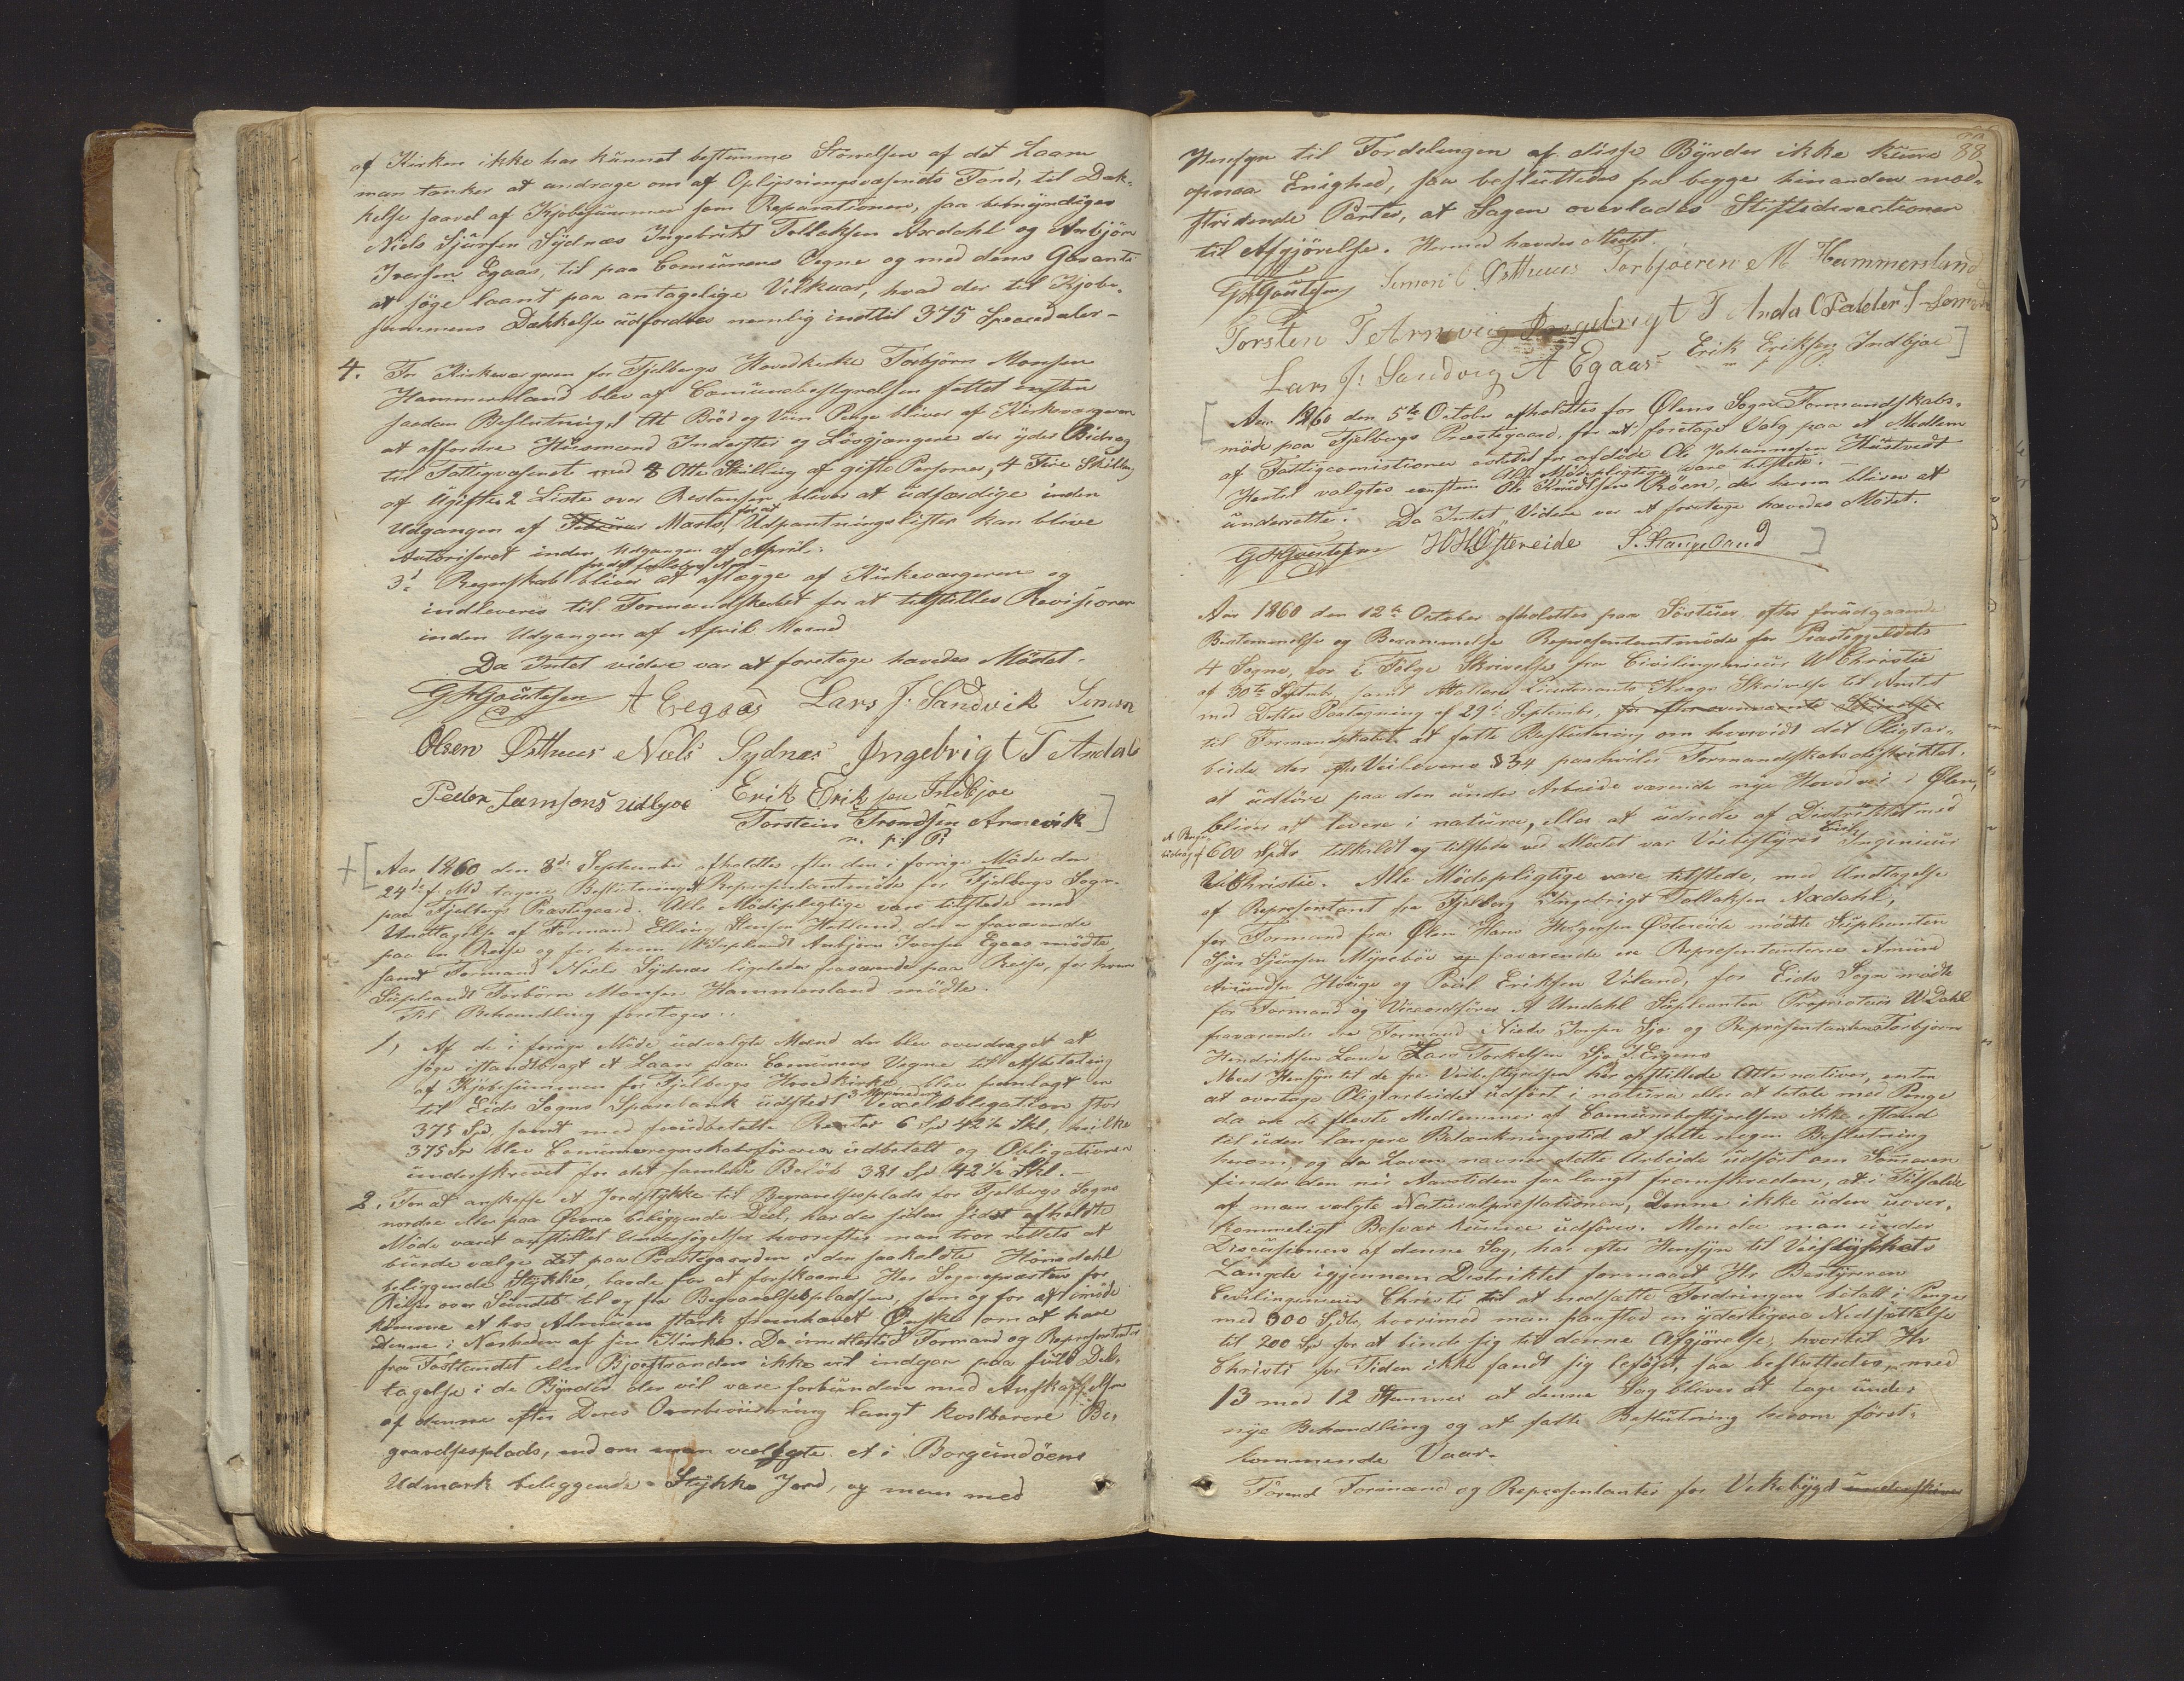 af Kirken ikke har kunnet bestemme Størrelsen af det Laan
man tænker at andrage om af Oplysningsvæsenets Fond, til Dæk-
kelse saavel af Kjøbesummen som Reparationen, saa bemyndiges
Niels Sjursen Sydnæs Ingebrikt Tollaksen Axdahl og Anbjørn
Iversen Egaas, til paa Comunens Vegne og med dens Garanti
at søge laant paa antagelige Vilkaar, hvad der til Kjøbe-
summens Dækkelse udfordres nemlig indtil 375 Speciedaler-
4. For Kirkeværgeren for Fjelbergs Hovedkirke Torbjørn Monsen
Hammersland blev af Comunebestyrelsen fattet en
saadan Beslutning, 1 At Brød og Viin Penge bliver af Kirkeværgeren
at affordre Huusmænd Inderster og Løsgjængere der yder Bidrag
til Fattigvæsenet med 8 Otte Skilling af gifte Personer, 4 Fire Skilling
af Ugifte, 2 Liste over Restanser bliver at udfærdige inden
Udgangen af Marts, for at Udpantningslister kan blive
Autoriseret inden Udgangen af April.
for det forløbne Aar
3d Regnskab bliver at aflægge af Kirkeværgeren og
indleveres til Formandskabet for at tilstilles Revisioner
inden Udgangen af April Maaned
Da Intet videre var at foretage hævedes Mødet-
GAGautesen A Eegaas Lars J. Sandvik Simon
Olsen Østhuus Niels Sydnæs Ingebrigt T Axdal
Peder Samsons Udbjoe Erik Eriksen Indbjoe
Torstein Trondsen Arnevik
m. p. P
Aar 1860 den 3de September afholdtes efter den i forrige Møde den
24de f. Md tagne Beslutning Repræsentantmøde for Fjelbergs Sogn
paa Fjelbergs Præstegaard. Alle Mødepligtige vare tilstede med
Undtagelse af Formand Elling Steensen Hetland, der er fraværende
paa en Reise og for hvem Supleant Anbjørn Iversen Egaas mødte
samt Formand Niels Sydnæs ligeledes fraværende paa Reise, for hvem
Supleandt Torbørn Monsen Hammersland mødte.
Til Behandling foretoges:
1, Af de i forrige Møde udvalgte Mænd der blev overdraget at
søge istandbragt et Laan paa Comunens Vegne til Afbetaling
af Kjøbesummen for Fjelbergs Hovedkirke, blev fremlagt en
til Eids Sogns Sparebank udstedt Vexelobligation stor
375 Spd, samt med forudbetalte Renter 6 Spd 42½ Skl, hvilke
375 Sp blev Comuneregnskabsføreren udbetalt og Obligationen
underskrevet for det samlede Beløb 381 Sp 42½ Skl.-
2. For at anskaffe et Jordstykke til Begravelsesplads for Fjelbergs Sogns
nordre eller paa Øerne beliggende Deel, har der siden sidst afholdte
Møde været anstillet Undersøgelser hvorefter man tror rettest at
burde vælge det paa Præstegaarden i den saakaldte Hønsdahl
beliggende Stykke, baade for at forskaane Hr Sognepræsten for
Reiser over Sundet til og fra Begravelsespladsen, som og for at imøde
komme et hos Almuen stærk fremhævet Ønske om at have
denne i Nærheden af sin Kirke. Da imidlertid Formænd og Repræsentanter
fra Fastlandet eller Bjoestranden ikke vil indgaa paa fuld Del-
tagelse i de Byrder der vil være forbunden med Anskaffelsen
af denne efter Deres Overbeviisning langt kostbarere Be-
gravelsesplads, end om man valgte et i Borgundøens
Udmark beliggende Stykke Jord, og man med
88
Hensyn til Fordelingen af disse Byrder ikke kunne
opnaa Enighed, saa besluttedes fra begge hinanden mod-
stridende Parter, at Sagen overlades Stiftsdirectionen
til Afgjørelse. Hermed hævedes Mødet.
GAGautesen Simon O Østhuus Torbjøren M Hammersland
Torsten T Arneviig Ingebrigt T Axda Pedder S
Lars J. Sandvig A Egaas Erik Eriksen Indbjoe
Aar 1860 den 5te October afholdtes for Ølens Sogn Formandskabs-
møde paa Fjelbergs Præstegaard, for at foretage Valg paa et Medlem
af Fattigcomisionen istedet for afdøde Ole Johannesen Hustvedt
Alle Mødepligtige vare tilstede.
Hertil valgtes Ole Knudtsen Røen, der herom bliver at
underrette. Da Intet Videre var at foretage hævedes Mødet.
GAGautesen HHØstereide S. Stangeland
Aar 1860 den 12te October afholdtes paa Sørtun efter forudgaaende
Bestemmelse og Berammelse Repræsentantmøde for Præstegjeldets
4 Sogne, for i Følge Skrivelse fra Civilingenieur W Christie
af 30te Septbr, samt Lieutenants Krags Skrivelse til Amtet
med Dettes Paategning af 29de September,
til Formandskabet at fatte Beslutning om hvorvidt det Pligtar-
beide der efter Veilovens §34 paahviler Formandskabsdistriktet,
at udføre paa den under Arbeide værende nye Hovedvei i Ølen,
bliver at levere i natura, eller at udrede af Distriktet med
et Penge
bidrag af 600 Spdlr tilkaldt og tilstede ved Mødet var Veibestyrer Civil Ingenieur
W Christie. Alle Mødepligtige vare tilstede, med Undtagelse
af Repræsentant fra Fjelberg Ingebrigt Tollaksen Axdahl,
for Formand fra Ølen Hans Helgesen Østereide mødte Supleanten
Sjur Sjursen Myrebøe fraværende ere Repræsentanterne Amund
Amundsen Houge og Poul Eriksen Viland, for Eids Sogn mødte
for Formand og Viceordfører A Undahl Supleanten Proprietair W Dahl
fraværende ere Formand Nils Jonsen Sjo og Repræsentanten Torbjørn
Hendriksen Lande Lars Torkelsen Sjo
Med Hensyn til de fra Veibestyrelsen her opstillede Alternativer, enten
at overtage Pligtarbeidet udført i natura eller at betale med Penge
da ere de fleste Medlemmer af Comunebestyrelsen ikke istand
til uden længere Betænkningstid at fatte nogen Beslutning
herom, og da Loven nævner dette Arbeide udført om Sommeren
finder den nu Aarstiden saa langt fremskreden, at i Tilfælde
af man valgte Naturalpræstationen, denne ikke uden uover-
kommeligt Besvær kunne udføres. Men da man under
Discusionen af denne Sag, har efter Hensyn til Veistykkets
Længde igjennem Distriktet formaaet Hr Bestyreren
Civilingenieur Christi til at nedsætte Fordringen betalt i Penge
med 300 Spdlr, hvorimod man paastod en yderligere Nedsættelse
til 200 Sp for at binde sig til denne Afgjørelse, hvortil Hr
Christi for Tiden ikke fandt sig beføjet, saa besluttedes med
13 mod 12 Stemmer at denne Sag bliver at tage under
nye Behandling og at fatte Beslutning herom først-
kommende Vaar.
Førend Formænd og Repræsentanter for Vikebygd